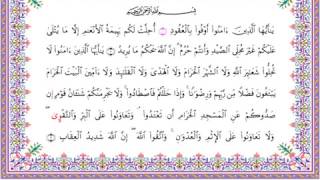 بسم الله الرحمن الرحيم
يَٰٓأَيُّهَا ٱلَّذِينَ ءَامَنُوٓا۟ أَوْفُوا۟ بِٱلْعُقُودِ أُحِلَّتْ لَكُم بَهِيمَةُ ٱلْأَنْعَٰمِ إِلَّا مَا يُتْلَىٰ
عَلَيْكُمْ غَيْرَ مُحِلِّى ٱلصَّيْدِ وَأَنتُمْ حُرُمٌ إِنَّ ٱللَّهَ يَحْكُمُ مَا يُرِيدُ ١ يَٰٓأَيُّهَا ٱلَّذِينَ ءَامَنُوا۟ لَا
تُحِلُّوا۟ شَعَٰٓئِرَ ٱللَّهِ وَلَا ٱلشَّهْرَ ٱلْحَرَامَ وَلَا ٱلْهَدْىَ وَلَا ٱلْقَلَٰٓئِدَ وَلَآ ءَآمِّينَ ٱلْبَيْتَ ٱلْحَرَامَ
يَبْتَغُونَ فَضْلًا مِّن رَّبِّهِمْ وَرِضْوَٰنًا وَإِذَا حَلَلْتُمْ فَٱصْطَادُوا۟ وَلَا يَجْرِمَنَّكُمْ شَنَـَٔانُ قَوْمٍ أَن
صَدُّوكُمْ عَنِ ٱلْمَسْجِدِ ٱلْحَرَامِ أَن تَعْتَدُوا۟ وَتَعَاوَنُوا۟ عَلَى ٱلْبِرِّ وَٱلتَّقْوَىٰ
وَلَا تَعَاوَنُوا۟ عَلَى ٱلْإِثْمِ وَٱلْعُدْوَٰنِ وَٱتَّقُوا۟ ٱللَّهَ إِنَّ ٱللَّهَ شَدِيدُ ٱلْعِقَابِ ٢